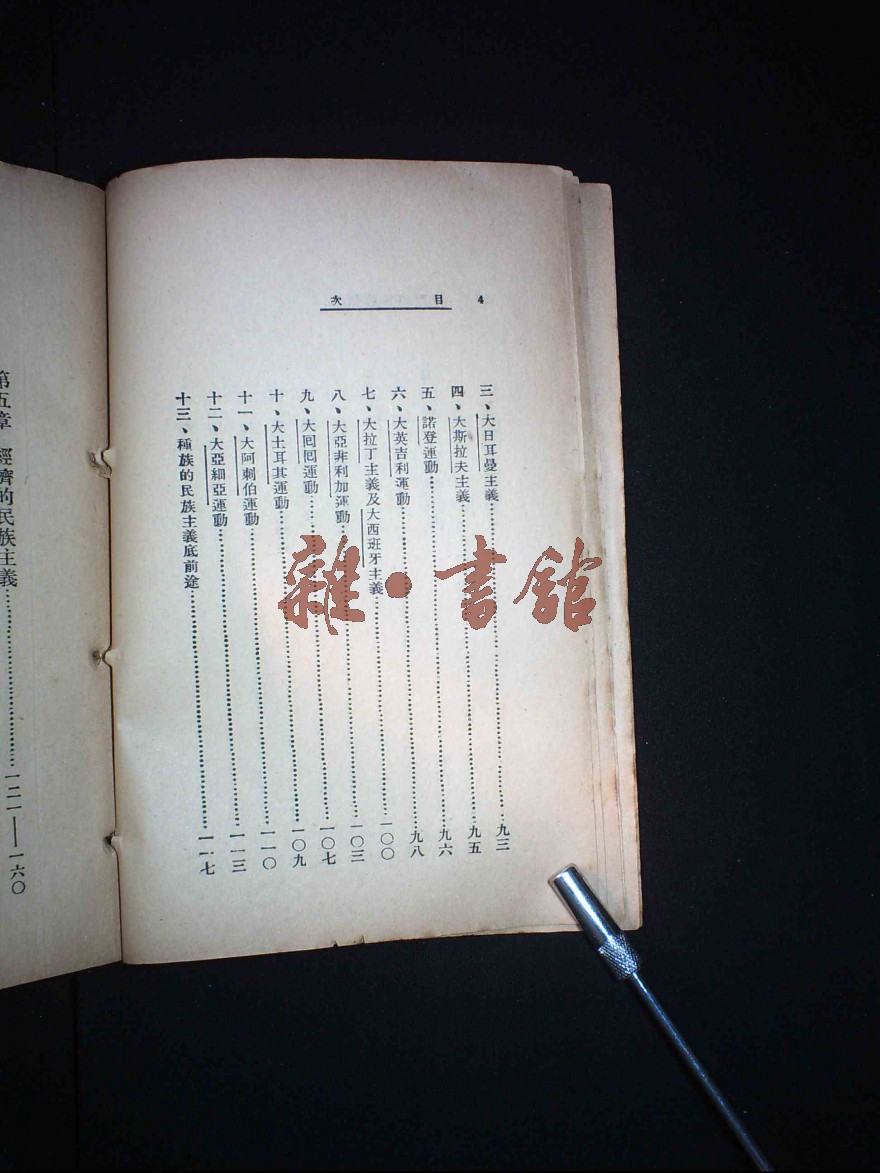 4 目次
三、大日耳曼主義……九三
四、大斯拉夫主義……九五
五、諾登運動……九六
六、大英吉利運動……九八
七、大拉丁主義及大西班牙主義……一〇〇
八、大亞非利加運動……一〇三
九、大囘囘運動……一〇七
十、大土耳其運動……一〇九
十一、大阿剌伯運動……一一〇
十二、大亞細亞運動……一一三
十三、種族的民族主義底前途……一一七
第五章 經濟的民族主義……一二一——一六〇
雜·書館